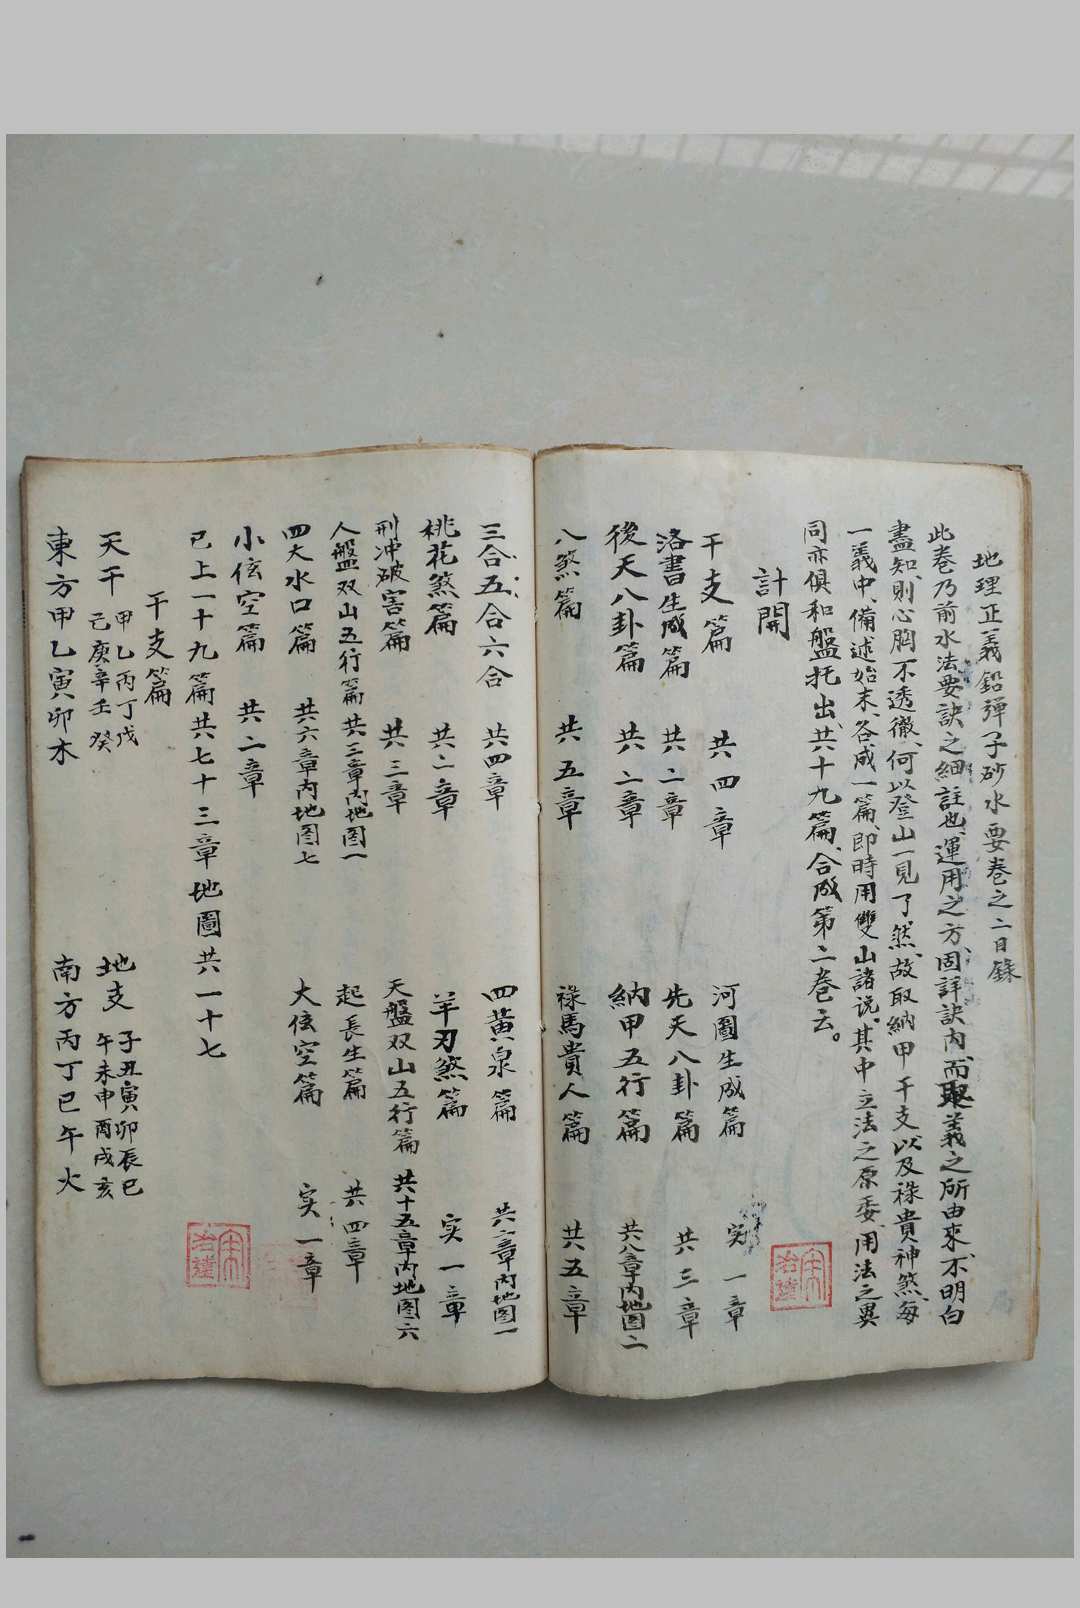 地理正義鉛彈子砂水要卷之二目錄
此卷乃前水法要訣之細註也、運用之方、固詳訣內、而取義之所由來、不明白
盡知、則心胸不透徹、何以登山一見了然、故取納甲干支以及祿貴神煞、每
一義中、備述始末、各成一篇、即時用雙山諸说、其中立法之原委、用法之異
同亦俱和盤托出、共十九篇、合成第二卷云。
計開
干支篇 共四章 河圖生成篇 实一章
洛書生成篇 共二章 先天八卦篇 共三章
後天八卦篇 共二章 納甲五行篇 共八章內地图二
八煞篇 共五章 祿馬貴人篇 共五章
三合五合六合 共四章 四黃泉篇 共六章內地图一
桃花煞篇 共二章 羊刃煞篇 实一章
刑冲破害篇 共三章 天盤双山五行篇 共十五章內地图六
人盤双山五行篇 共三章內地图一 起長生篇 共四章
四大水口篇 共六章內地图七 大弦空篇 实一章
小弦空篇 共二章
已上一十九篇共七十三章地圖共一十七
干支篇
天干 甲乙丙丁戊己庚辛壬癸 地支 子丑寅卯辰巳午未申酉戌亥
東方甲乙寅卯木 南方丙丁巳午火